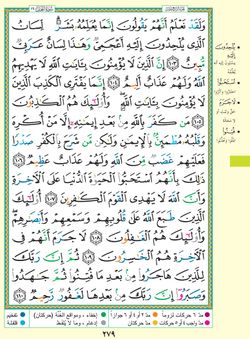 وَلَقَدْ نَعْلَمُ أَنَّهُمْ يَقُولُونَ إِنَّمَا يُعَلِّمُهُۥ بَشَرٌ ۗ لِّسَانُ
ٱلَّذِى يُلْحِدُونَ إِلَيْهِ أَعْجَمِىٌّ وَهَـٰذَا لِسَانٌ عَرَبِىٌّ
مُّبِينٌ ١٠٣ إِنَّ ٱلَّذِينَ لَا يُؤْمِنُونَ بِـَٔايَـٰتِ ٱللَّهِ لَا يَهْدِيهِمُ
ٱللَّهُ وَلَهُمْ عَذَابٌ أَلِيمٌ ١٠٤ إِنَّمَا يَفْتَرِى ٱلْكَذِبَ ٱلَّذِينَ
لَا يُؤْمِنُونَ بِـَٔايَـٰتِ ٱللَّهِ ۖ وَأُو۟لَـٰٓئِكَ هُمُ ٱلْكَـٰذِبُونَ ١٠٥
مَن كَفَرَ بِٱللَّهِ مِنۢ بَعْدِ إِيمَـٰنِهِۦٓ إِلَّا مَنْ أُكْرِهَ
وَقَلْبُهُۥ مُطْمَئِنٌّۢ بِٱلْإِيمَـٰنِ وَلَـٰكِن مَّن شَرَحَ بِٱلْكُفْرِ صَدْرًا
فَعَلَيْهِمْ غَضَبٌ مِّنَ ٱللَّهِ وَلَهُمْ عَذَابٌ عَظِيمٌ ١٠٦
ذَٰلِكَ بِأَنَّهُمُ ٱسْتَحَبُّوا۟ ٱلْحَيَوٰةَ ٱلدُّنْيَا عَلَى ٱلْـَٔاخِرَةِ
وَأَنَّ ٱللَّهَ لَا يَهْدِى ٱلْقَوْمَ ٱلْكَـٰفِرِينَ ١٠٧ أُو۟لَـٰٓئِكَ
ٱلَّذِينَ طَبَعَ ٱللَّهُ عَلَىٰ قُلُوبِهِمْ وَسَمْعِهِمْ وَأَبْصَـٰرِهِمْ ۖ
وَأُو۟لَـٰٓئِكَ هُمُ ٱلْغَـٰفِلُونَ ١٠٨ لَا جَرَمَ أَنَّهُمْ فِى
ٱلْـَٔاخِرَةِ هُمُ ٱلْخَـٰسِرُونَ ١٠٩ ثُمَّ إِنَّ رَبَّكَ
لِلَّذِينَ هَاجَرُوا۟ مِنۢ بَعْدِ مَا فُتِنُوا۟ ثُمَّ جَـٰهَدُوا۟
وَصَبَرُوٓا۟ إِنَّ رَبَّكَ مِنۢ بَعْدِهَا لَغَفُورٌ رَّحِيمٌ ١١٠
٢٧٩